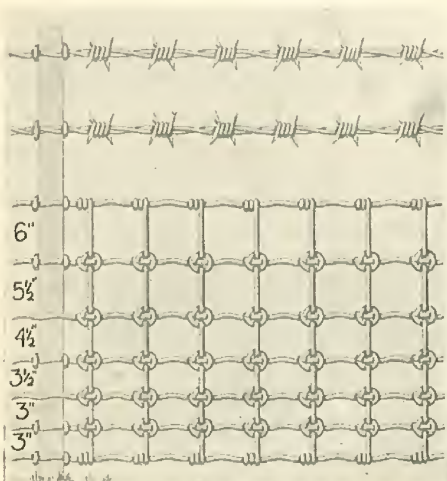 6"
5½"
4½"
3½"
3"
3"